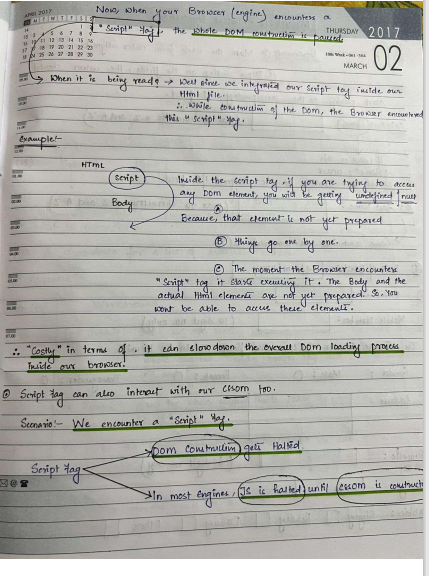 Now, when your Browser (engine) encounters a
"Script" tag, the whole DOM construction is paused.
APRIL 2017
THURSDAY 2017
MARCH 02
When it is being read → Well since we integrated our Script tag inside our
Html file.
∴ While construction of the Dom, the Browser encountered
this "Script" tag.
Example:-
HTML
Script
Body
Inside the script tag, if you are trying to access
any Dom element, you will be getting undefined / null
Ⓐ
Because, that element is not yet prepared
Ⓑ Things go one by one.
Ⓒ The moment the Browser encounters
"Script" tag it starts executing it. The Body and the
actual Html elements are not yet prepared. So, You
wont be able to access these elements.
∴ "Costly" in terms of, it can slow down the overall Dom loading process
inside our browser.
Script tag can also interact with our CSSOM too.
Scenario:- We encounter a "Script" tag.
Script tag
Dom Construction gets Halted
In most engines, JS is halted until CSSOM is construct